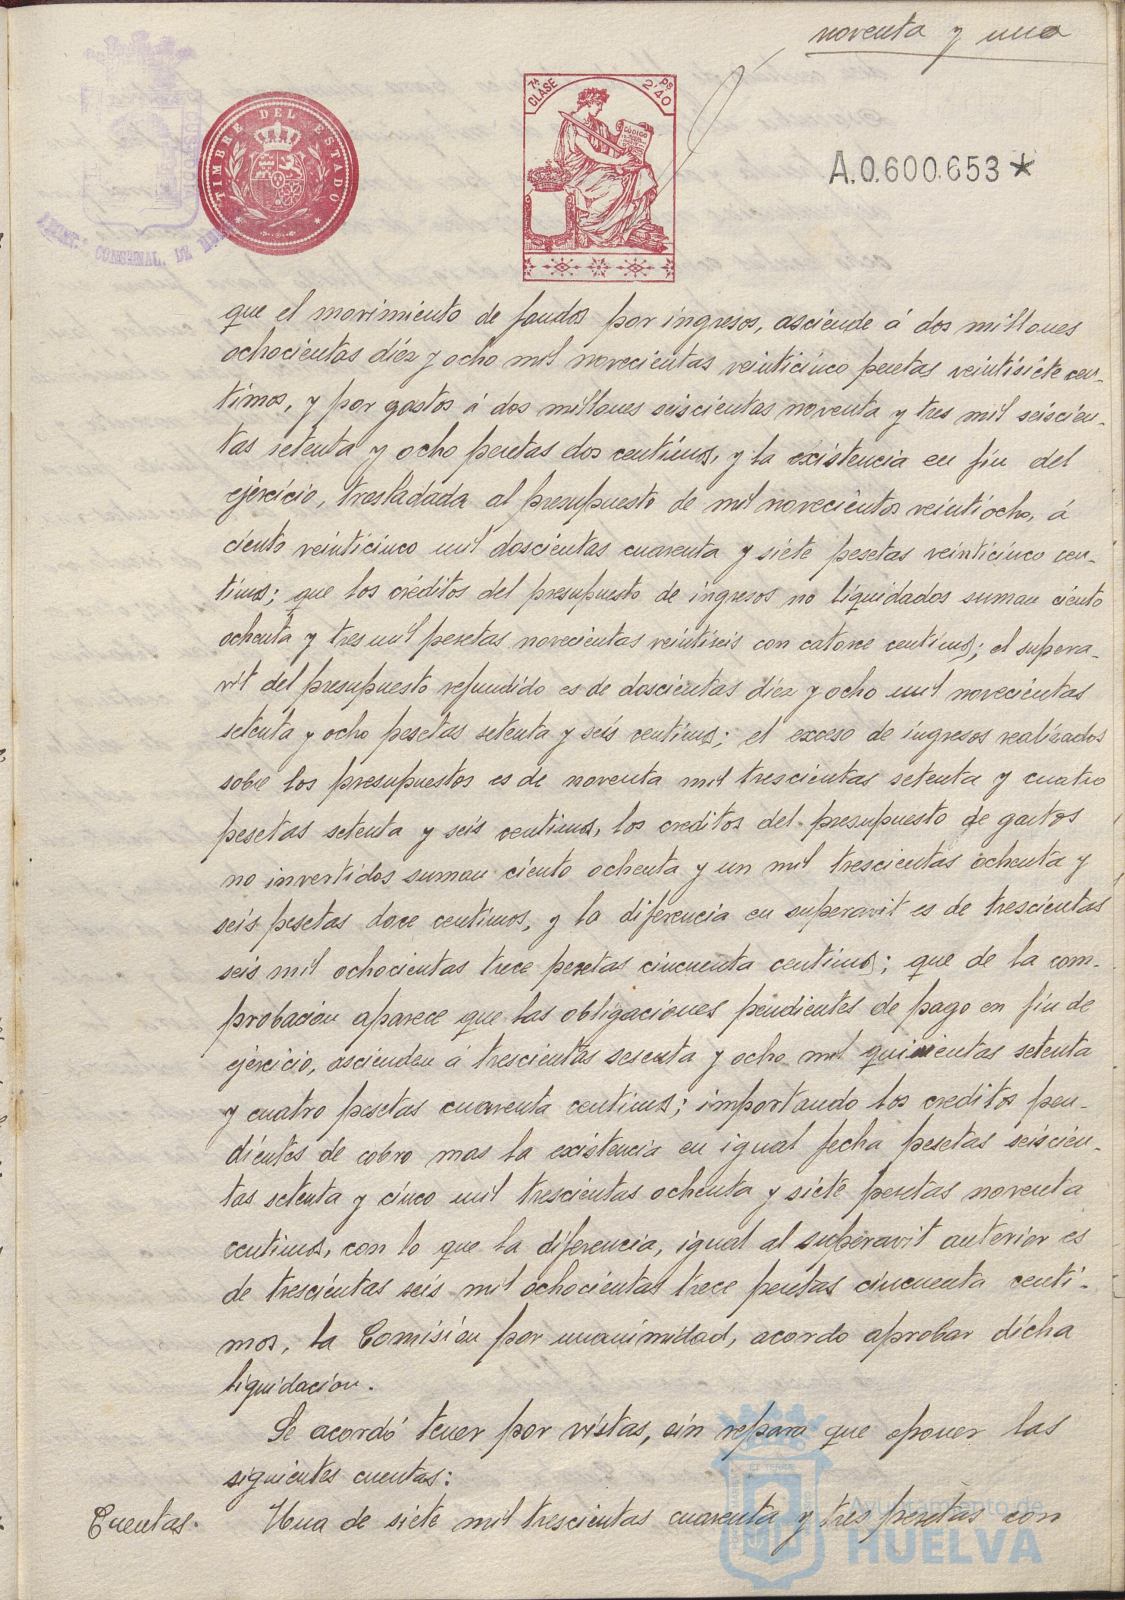 noventa y una
TIMBRE DEL ESTADO
7ª CLASE
Ps 2'40
CÓDIGO
A.0.600.653 *
que el movimiento de fondos por ingresos, asciende á dos millones
ochocientas diéz y ocho mil novecientas veinticinco pesetas veintisiete cen-
timos, y por gastos á dos millones seiscientas noventa y tres mil seiscien-
tas setenta y ocho pesetas dos centimos, y la existencia en fin del
ejercicio, trasladada al presupuesto de mil novecientos veintiocho, á
ciento veinticinco mil doscientas cuarenta y siete pesetas veinticinco cen-
timos; que los créditos del presupuesto de ingresos no liquidados suman ciento
ochenta y tres mil pesetas novecientas veintiseis con catorce centimos; el supera-
vit del presupuesto refundido es de doscientas diez y ocho mil novecientas
setenta y ocho pesetas setenta y seis centimos; el exceso de ingresos realizados
sobre los presupuestos es de noventa mil trescientas setenta y cuatro
pesetas setenta y seis centimos, los creditos del presupuesto de gastos
no invertidos suman ciento ochenta y un mil trescientas ochenta y
seis pesetas doce centimos, y la diferencia en superavit es de trescientas
seis mil ochocientas trece pesetas cincuenta centimos; que de la com-
probación aparece que las obligaciones pendientes de pago en fin de
ejercicio, ascienden á trescientas sesenta y ocho mil quinientas setenta
y cuatro pesetas cuarenta centimos; importando los creditos pen-
dientes de cobro mas la existencia en igual fecha pesetas seiscien-
tas setenta y cinco mil trescientas ochenta y siete pesetas noventa
centimos, con lo que la diferencia, igual al superavit anterior es
de trescientas seis mil ochocientas trece pesetas cincuenta centi-
mos, la Comisión por unanimidad, acordo aprobar dicha
liquidacion.
Se acordó tener por vistas, sin reparo que oponer las
siguientes cuentas:
Cuentas. Una de siete mil trescientas cuarenta y tres pesetas con
Ayuntamiento de
HUELVA